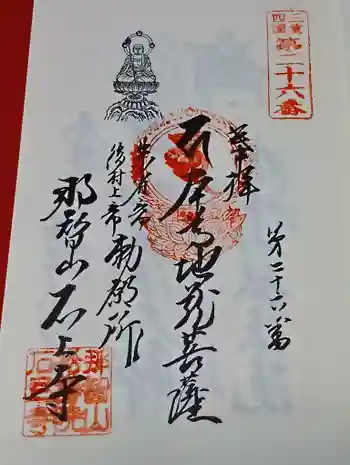 三重
四国
第二十六番
奉拝
本尊地蔵菩薩
後村上帝勅願所
那智山石上寺
第二十六番